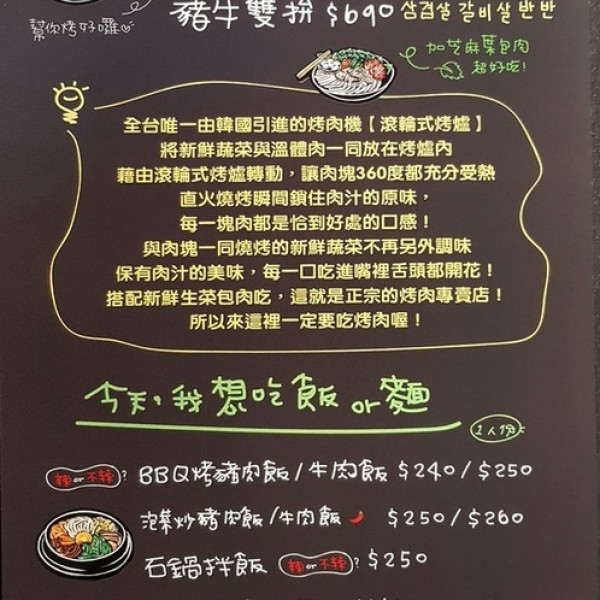 豬牛雙拚 $690 삼겹살 갈비살 반반
幫你烤好囉
加芝麻葉包肉
超好吃!
全台唯一由韓國引進的烤肉機【滾輪式烤爐】
將新鮮蔬菜與溫體肉一同放在烤爐內
藉由滾輪式烤爐轉動，讓肉塊360度都充分受熱
直火燒烤瞬間鎖住肉汁的原味，
每一塊肉都是恰到好處的口感！
與肉塊一同燒烤的新鮮蔬菜不再另外調味
保有肉汁的美味，每一口吃進嘴裡舌頭都開花！
搭配新鮮生菜包肉吃，這就是正宗的烤肉專賣店！
所以來這裡一定要吃烤肉喔！
今天，我想吃飯 or 麵
1人份
辣 or 不辣? BBQ烤豬肉飯/牛肉飯 $240/$250
泡菜炒豬肉飯/牛肉飯 $250/$260
石鍋拌飯 辣 or 不辣? $250